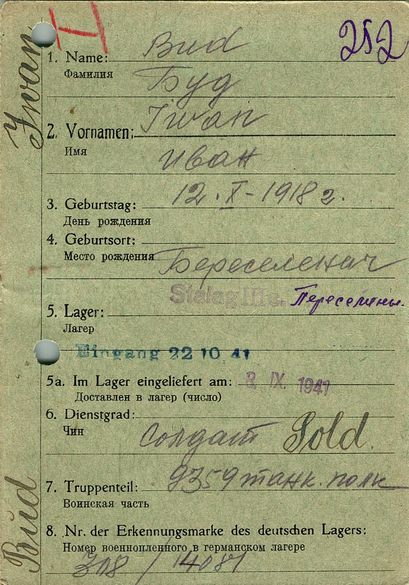 Iwan
252
1. Name: Bud
Фамилия Буд
2. Vornamen: Iwan
Имя Иван
3. Geburtstag: 12.X-1918 г.
День рождения
4. Geburtsort:
Место рождения Береселенач
Stalag Пересечины
5. Lager:
Лагер
Eingang 22 10 41
5a. Im Lager eingeliefert am: 8. IX. 1941
Доставлен в лагер (число)
6. Dienstgrad:
Чин солдат Sold.
7. Truppenteil: 9359 танк. полк
Воинская часть
8. Nr. der Erkennungsmarke des deutschen Lagers:
Номер военнопленного в германском лагере
308 / 14081
Bud